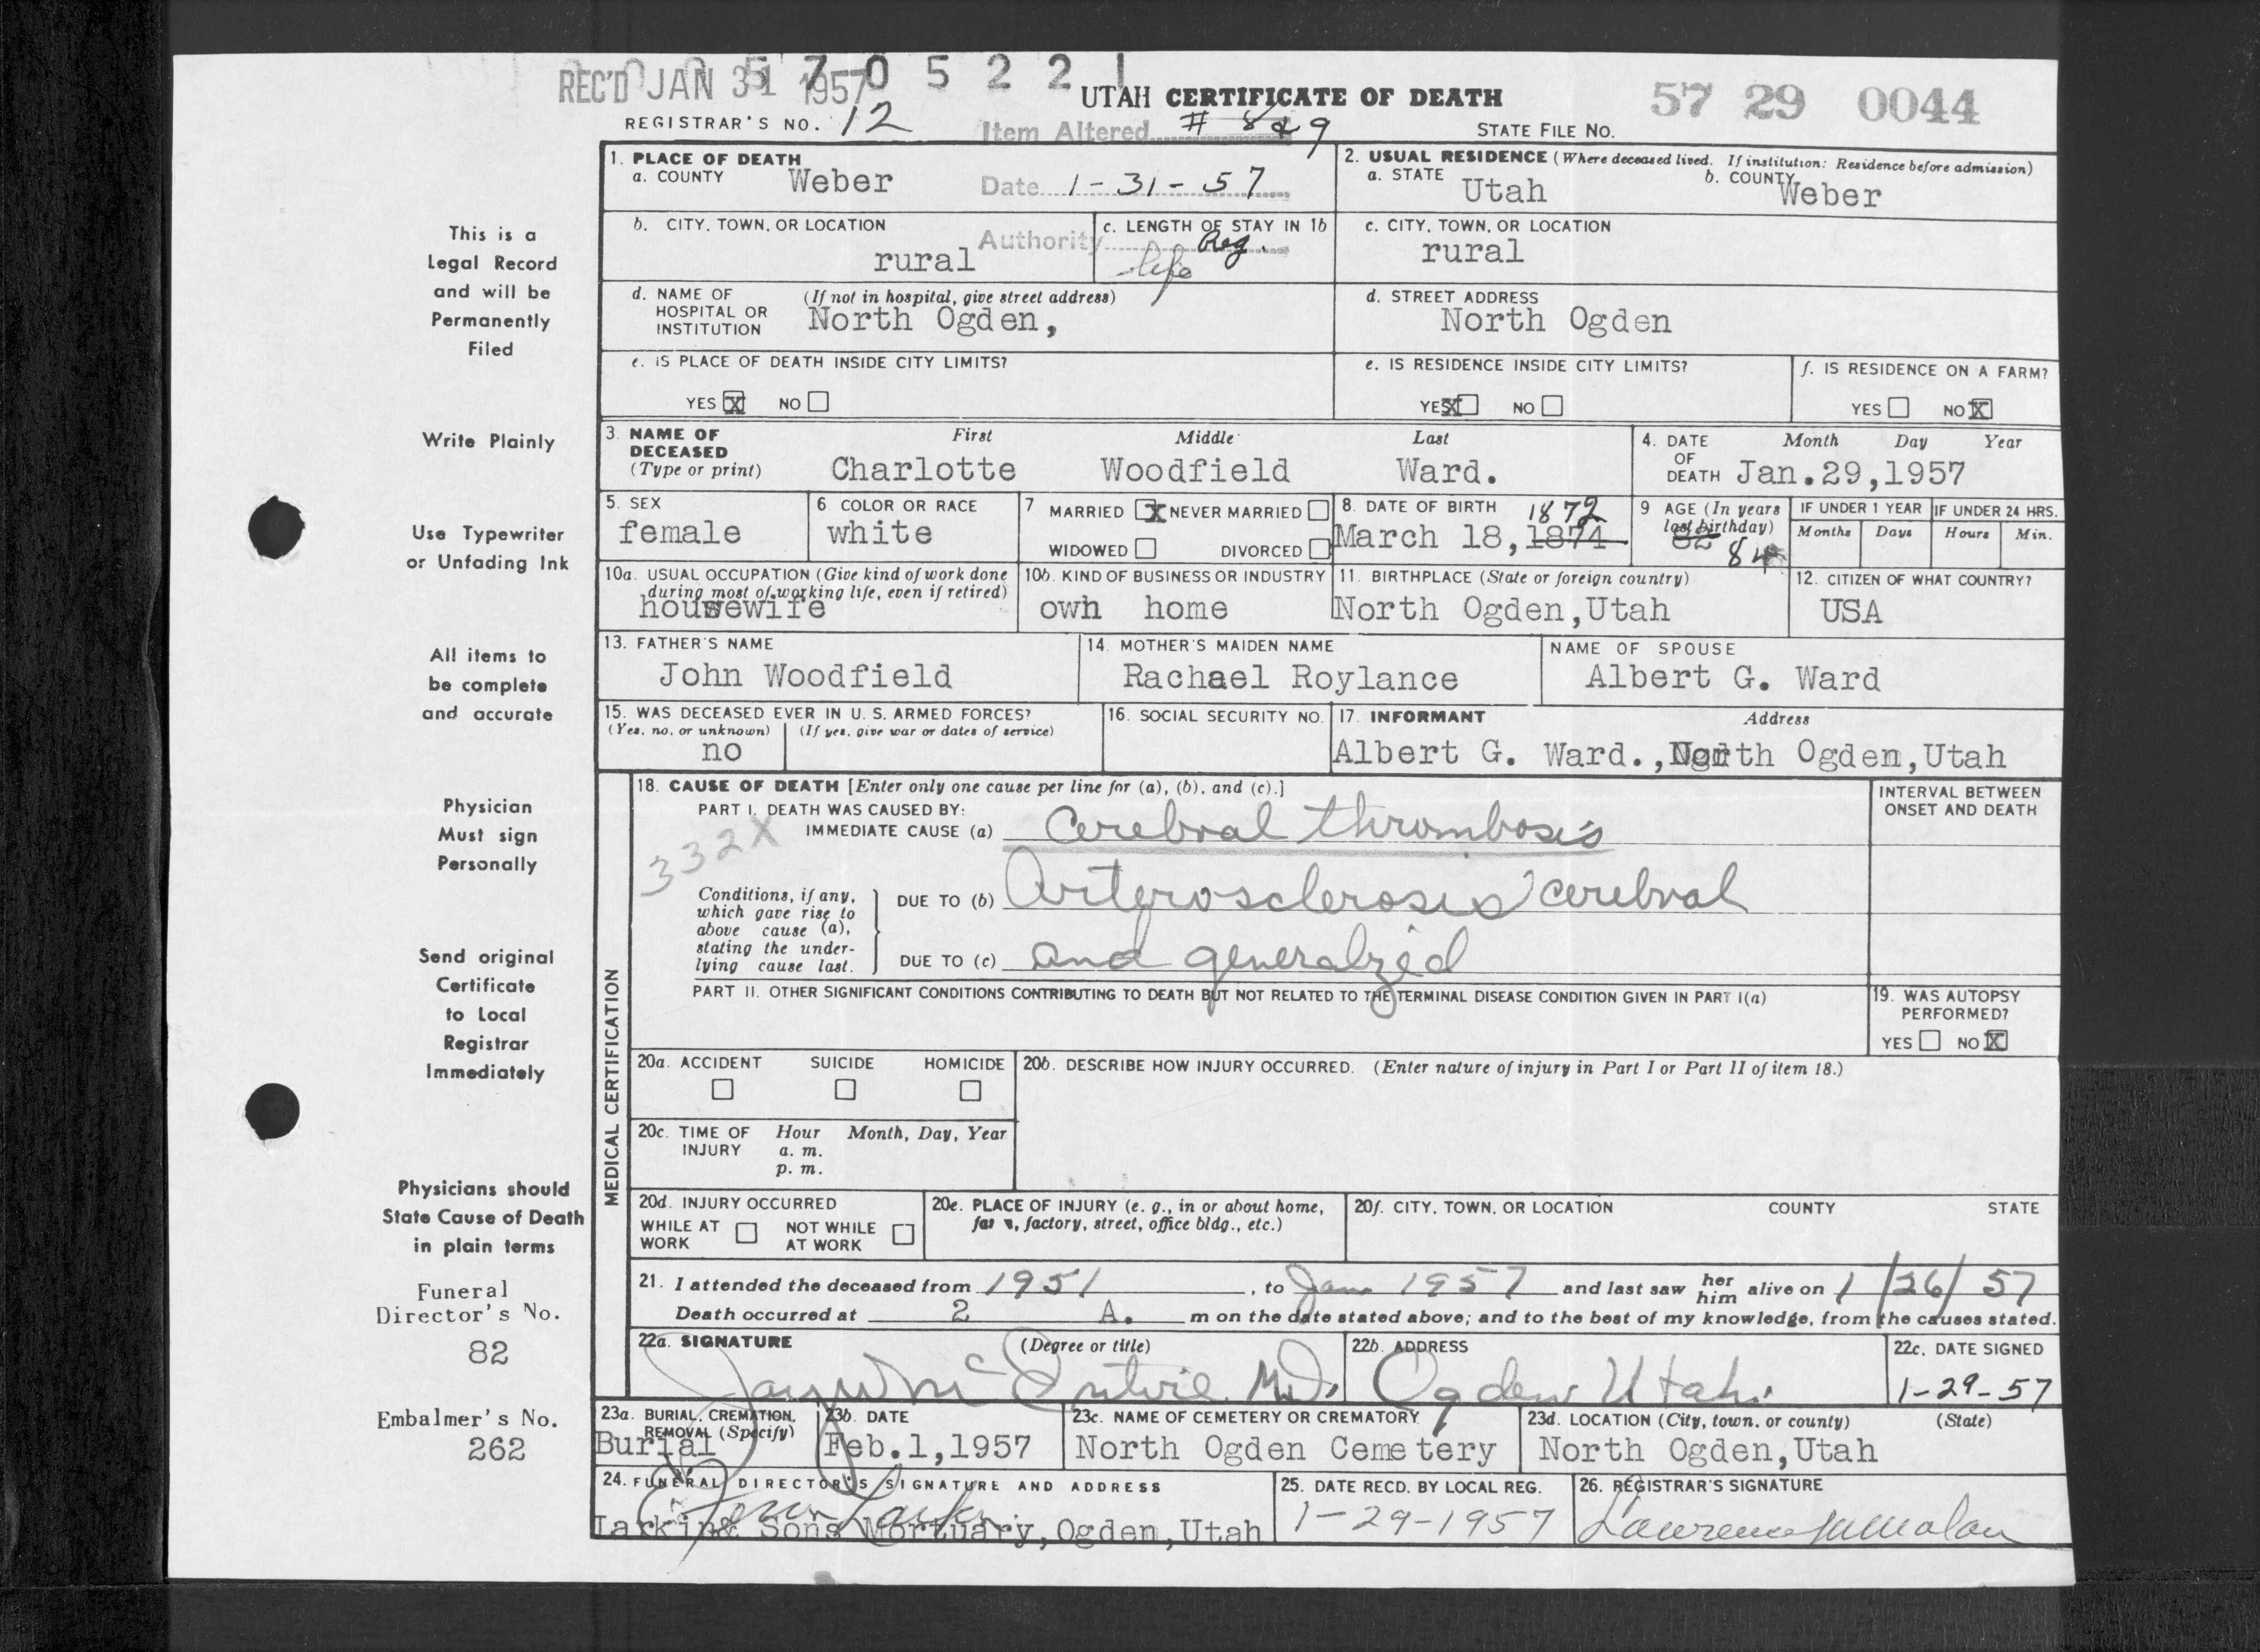 REC'D JAN 31 1957
5 7 0 5 2 2 1
UTAH CERTIFICATE OF DEATH
57 29 0044
REGISTRAR'S NO. 12
Item Altered # 8 & 9
STATE FILE NO.
1. PLACE OF DEATH
a. COUNTY Weber
Date 1-31-57
2. USUAL RESIDENCE (Where deceased lived. If institution: Residence before admission)
a. STATE Utah
b. COUNTY Weber
b. CITY, TOWN, OR LOCATION
rural
Authority Reg.
c. LENGTH OF STAY IN 1b
life
c. CITY, TOWN, OR LOCATION
rural
d. NAME OF HOSPITAL OR INSTITUTION (If not in hospital, give street address)
North Ogden,
d. STREET ADDRESS
North Ogden
e. IS PLACE OF DEATH INSIDE CITY LIMITS?
YES X NO
e. IS RESIDENCE INSIDE CITY LIMITS?
YES X NO
f. IS RESIDENCE ON A FARM?
YES NO X
3. NAME OF DECEASED (Type or print)
First Middle Last
Charlotte Woodfield Ward.
4. DATE OF DEATH
Month Day Year
Jan.29,1957
5. SEX
female
6 COLOR OR RACE
white
7 MARRIED X NEVER MARRIED
WIDOWED DIVORCED
8. DATE OF BIRTH 1872
March 18, 1874
9 AGE (In years last birthday)
82 84
IF UNDER 1 YEAR
Months Days
IF UNDER 24 HRS.
Hours Min.
10a. USUAL OCCUPATION (Give kind of work done during most of working life, even if retired)
housewife
10b. KIND OF BUSINESS OR INDUSTRY
own home
11. BIRTHPLACE (State or foreign country)
North Ogden,Utah
12. CITIZEN OF WHAT COUNTRY?
USA
13. FATHER'S NAME
John Woodfield
14. MOTHER'S MAIDEN NAME
Rachael Roylance
NAME OF SPOUSE
Albert G. Ward
15. WAS DECEASED EVER IN U. S. ARMED FORCES?
(Yes, no, or unknown) (If yes, give war or dates of service)
no
16. SOCIAL SECURITY NO.
17. INFORMANT Address
Albert G. Ward.,North Ogden,Utah
MEDICAL CERTIFICATION
18. CAUSE OF DEATH [Enter only one cause per line for (a), (b), and (c).]
INTERVAL BETWEEN ONSET AND DEATH
PART I. DEATH WAS CAUSED BY:
IMMEDIATE CAUSE (a) Cerebral thrombosis
332X
Conditions, if any, which gave rise to above cause (a), stating the underlying cause last.
DUE TO (b) Arterosclerosis cerebral
DUE TO (c) and generalzed
PART II. OTHER SIGNIFICANT CONDITIONS CONTRIBUTING TO DEATH BUT NOT RELATED TO THE TERMINAL DISEASE CONDITION GIVEN IN PART I(a)
19. WAS AUTOPSY PERFORMED?
YES NO X
20a. ACCIDENT SUICIDE HOMICIDE
20b. DESCRIBE HOW INJURY OCCURRED. (Enter nature of injury in Part I or Part II of item 18.)
20c. TIME OF INJURY Hour Month, Day, Year
a. m.
p. m.
20d. INJURY OCCURRED
WHILE AT WORK NOT WHILE AT WORK
20e. PLACE OF INJURY (e. g., in or about home, farm, factory, street, office bldg., etc.)
20f. CITY, TOWN, OR LOCATION COUNTY STATE
21. I attended the deceased from 1951, to Jan 1957 and last saw her him alive on 1/26/57
Death occurred at 2 A. m on the date stated above; and to the best of my knowledge, from the causes stated.
22a. SIGNATURE (Degree or title)
Jay W McEntire M.D.
22b. ADDRESS
Ogden Utah.
22c. DATE SIGNED
1-29-57
23a. BURIAL, CREMATION, REMOVAL (Specify)
Burial
23b. DATE
Feb.1,1957
23c. NAME OF CEMETERY OR CREMATORY
North Ogden Cemetery
23d. LOCATION (City, town, or county) (State)
North Ogden,Utah
24. FUNERAL DIRECTOR'S SIGNATURE AND ADDRESS
Larkin& Sons Mortuary,Ogden,Utah
25. DATE RECD. BY LOCAL REG.
1-29-1957
26. REGISTRAR'S SIGNATURE
Lawrence
This is a
Legal Record
and will be
Permanently
Filed
Write Plainly
Use Typewriter
or Unfading Ink
All items to
be complete
and accurate
Physician
Must sign
Personally
Send original
Certificate
to Local
Registrar
Immediately
Physicians should
State Cause of Death
in plain terms
Funeral
Director's No.
82
Embalmer's No.
262